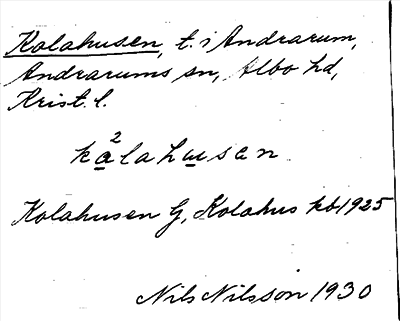 Kolahusen, t. i Andrarum,
Andrarums sn, Albo hd,
Krist. l.
2
kalahusen
Kolahusen G, Kolahus kb 1925
Nils Nilsson 1930